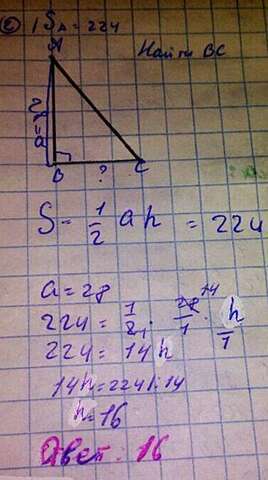 2) S△ = 224
Найти BC
A
a = 28
B ? C
S = 1/2 a h = 224
a = 28
224 = 1/2 · 28/1 · h/1
14
224 = 14h
14h = 224 | : 14
h = 16
Ответ: 16